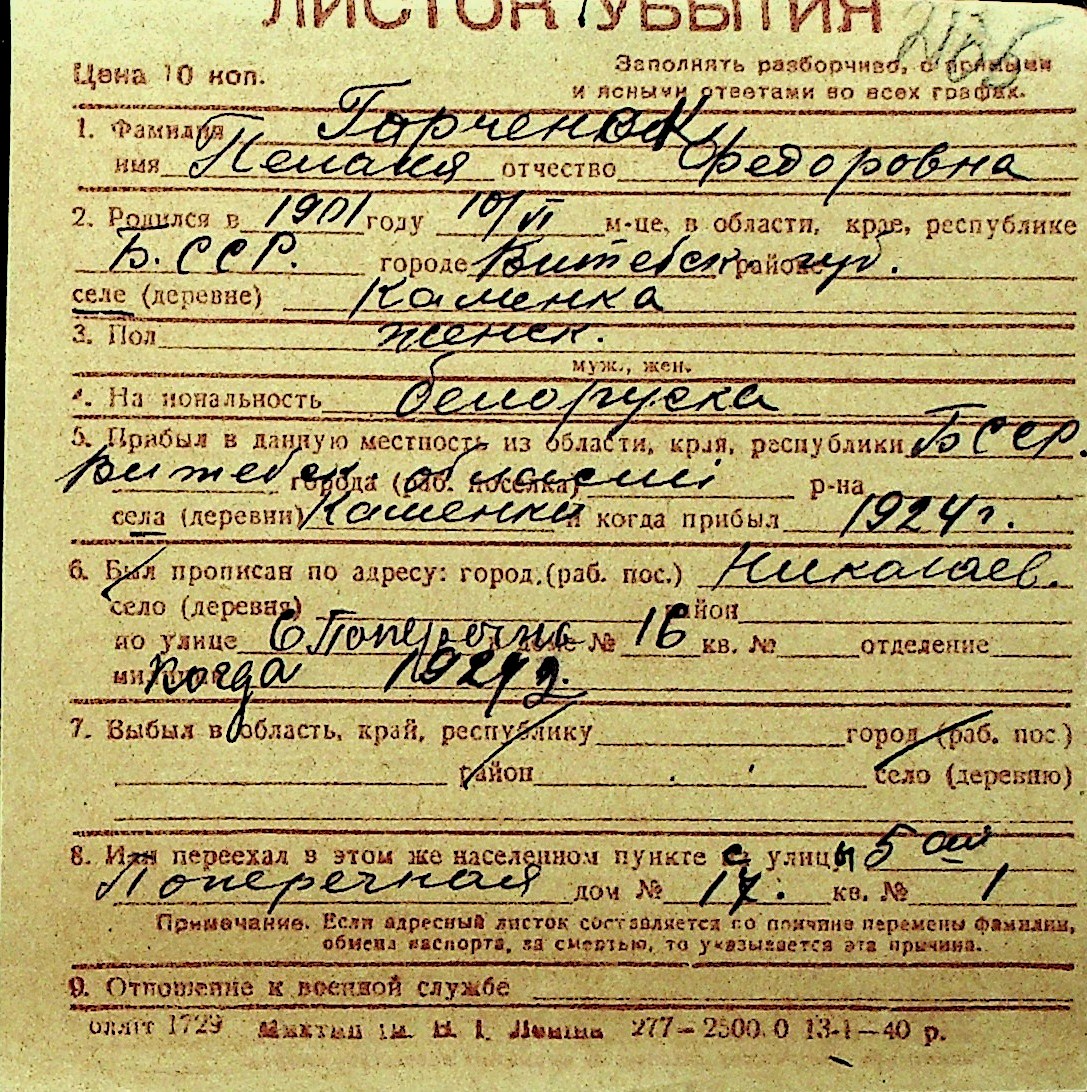 ЛИСТОК УБЫТИЯ
Цена 10 коп.
Заполнять разборчиво, с прямыми
и ясными ответами во всех графах.
1. Фамилия Горченок
имя Пелагия отчество Федоровна
2. Родился в 1901 году 10/VI м-це, в области, крае, республике
Б.ССР. городе Витебск. районе губ.
селе (деревне) Каменка
3. Пол женск.
муж., жен.
4. На иональность белоруска
5. Прибыл в данную местность из области, края, республики БССР.
Витебск. города (раб. поселка) области р-на
села (деревни) Каменки и когда прибыл 1924 г.
6. Был прописан по адресу: город, (раб. пос.) Николаев.
село (деревня) район
по улице 6 Поперечна доме № 16 кв. № отделение
милиции Когда 1924 г.
7. Выбыл в область, край, республику город (раб. пос.)
район село (деревню)
8. Или переехал в этом же населенном пункте с улицы 5 ой
Поперечная дом № 17. кв. № 1
Примечание. Если адресный листок составляется по причине перемены фамилии,
обмена паспорта, за смертью, то указывается эта причина.
9. Отношение к военной службе
1729 им. В. І. Леніна 277—2500.0 13-1—40 р.